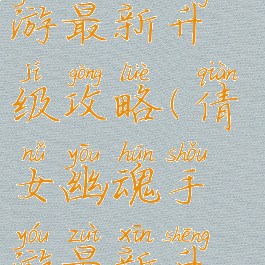 游最新升
jí gōng lüè qiàn
级攻略(倩
nǚ yōu hún shǒu
女幽魂手
yóu zuì xīn shēng
游最新升